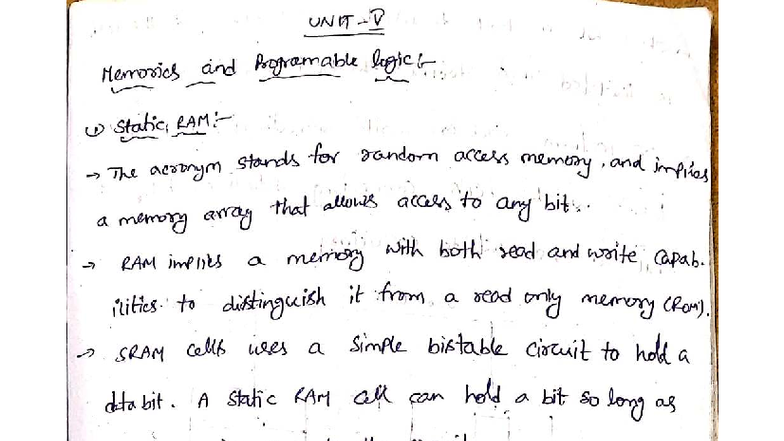 UNIT-V
Memories and Programable logic:-
1) Static RAM:-
→ The acronym stands for random access memory, and implies
a memory array that allows access to any bit.
→ RAM implies a memory with both read and write capab-
ilities to distinguish it from a read only memory (ROM).
→ SRAM cells uses a simple bistable circuit to hold a
data bit. A static RAM cell can hold a bit so long as